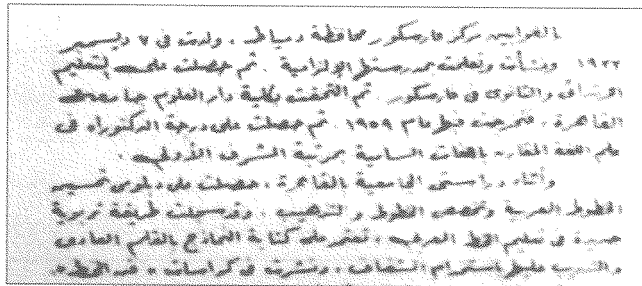 بالغوابين مركز فارسكور محافظة دمياط . ولدت فى ٧ ديسمبر
١٩٢٢ ونشأت وتعلمت بمدرستها الإلزامية . ثم حصلت على التعليم
الابتدائى والثانوى فى فارسكور . ثم التحقت بكلية دار العلوم جامعة
القاهرة ، فتخرجت فيها عام ١٩٥٩ . ثم حصلت على درجة الدكتوراه فى
علم اللغة المقارن باللغات السامية بمرتبة الشرف الأولى .
وأثناء دراستى الجامعية القاهرة ، حصلت على دبلومى تحسين
الخطوط العربية وتخصص الخطوط والتذهيب ، وقد سجلت طريقة تربوية
جديدة فى تعليم الخط العربى ، تعتمد على كتابة النماذج بالقلم العادى
والتدريب عليها باستخدام الشفاف ، ونشرت فى كراسات